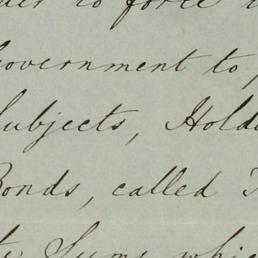 to force
Government to
Subjects, Hold
Bonds, called
Sums, which